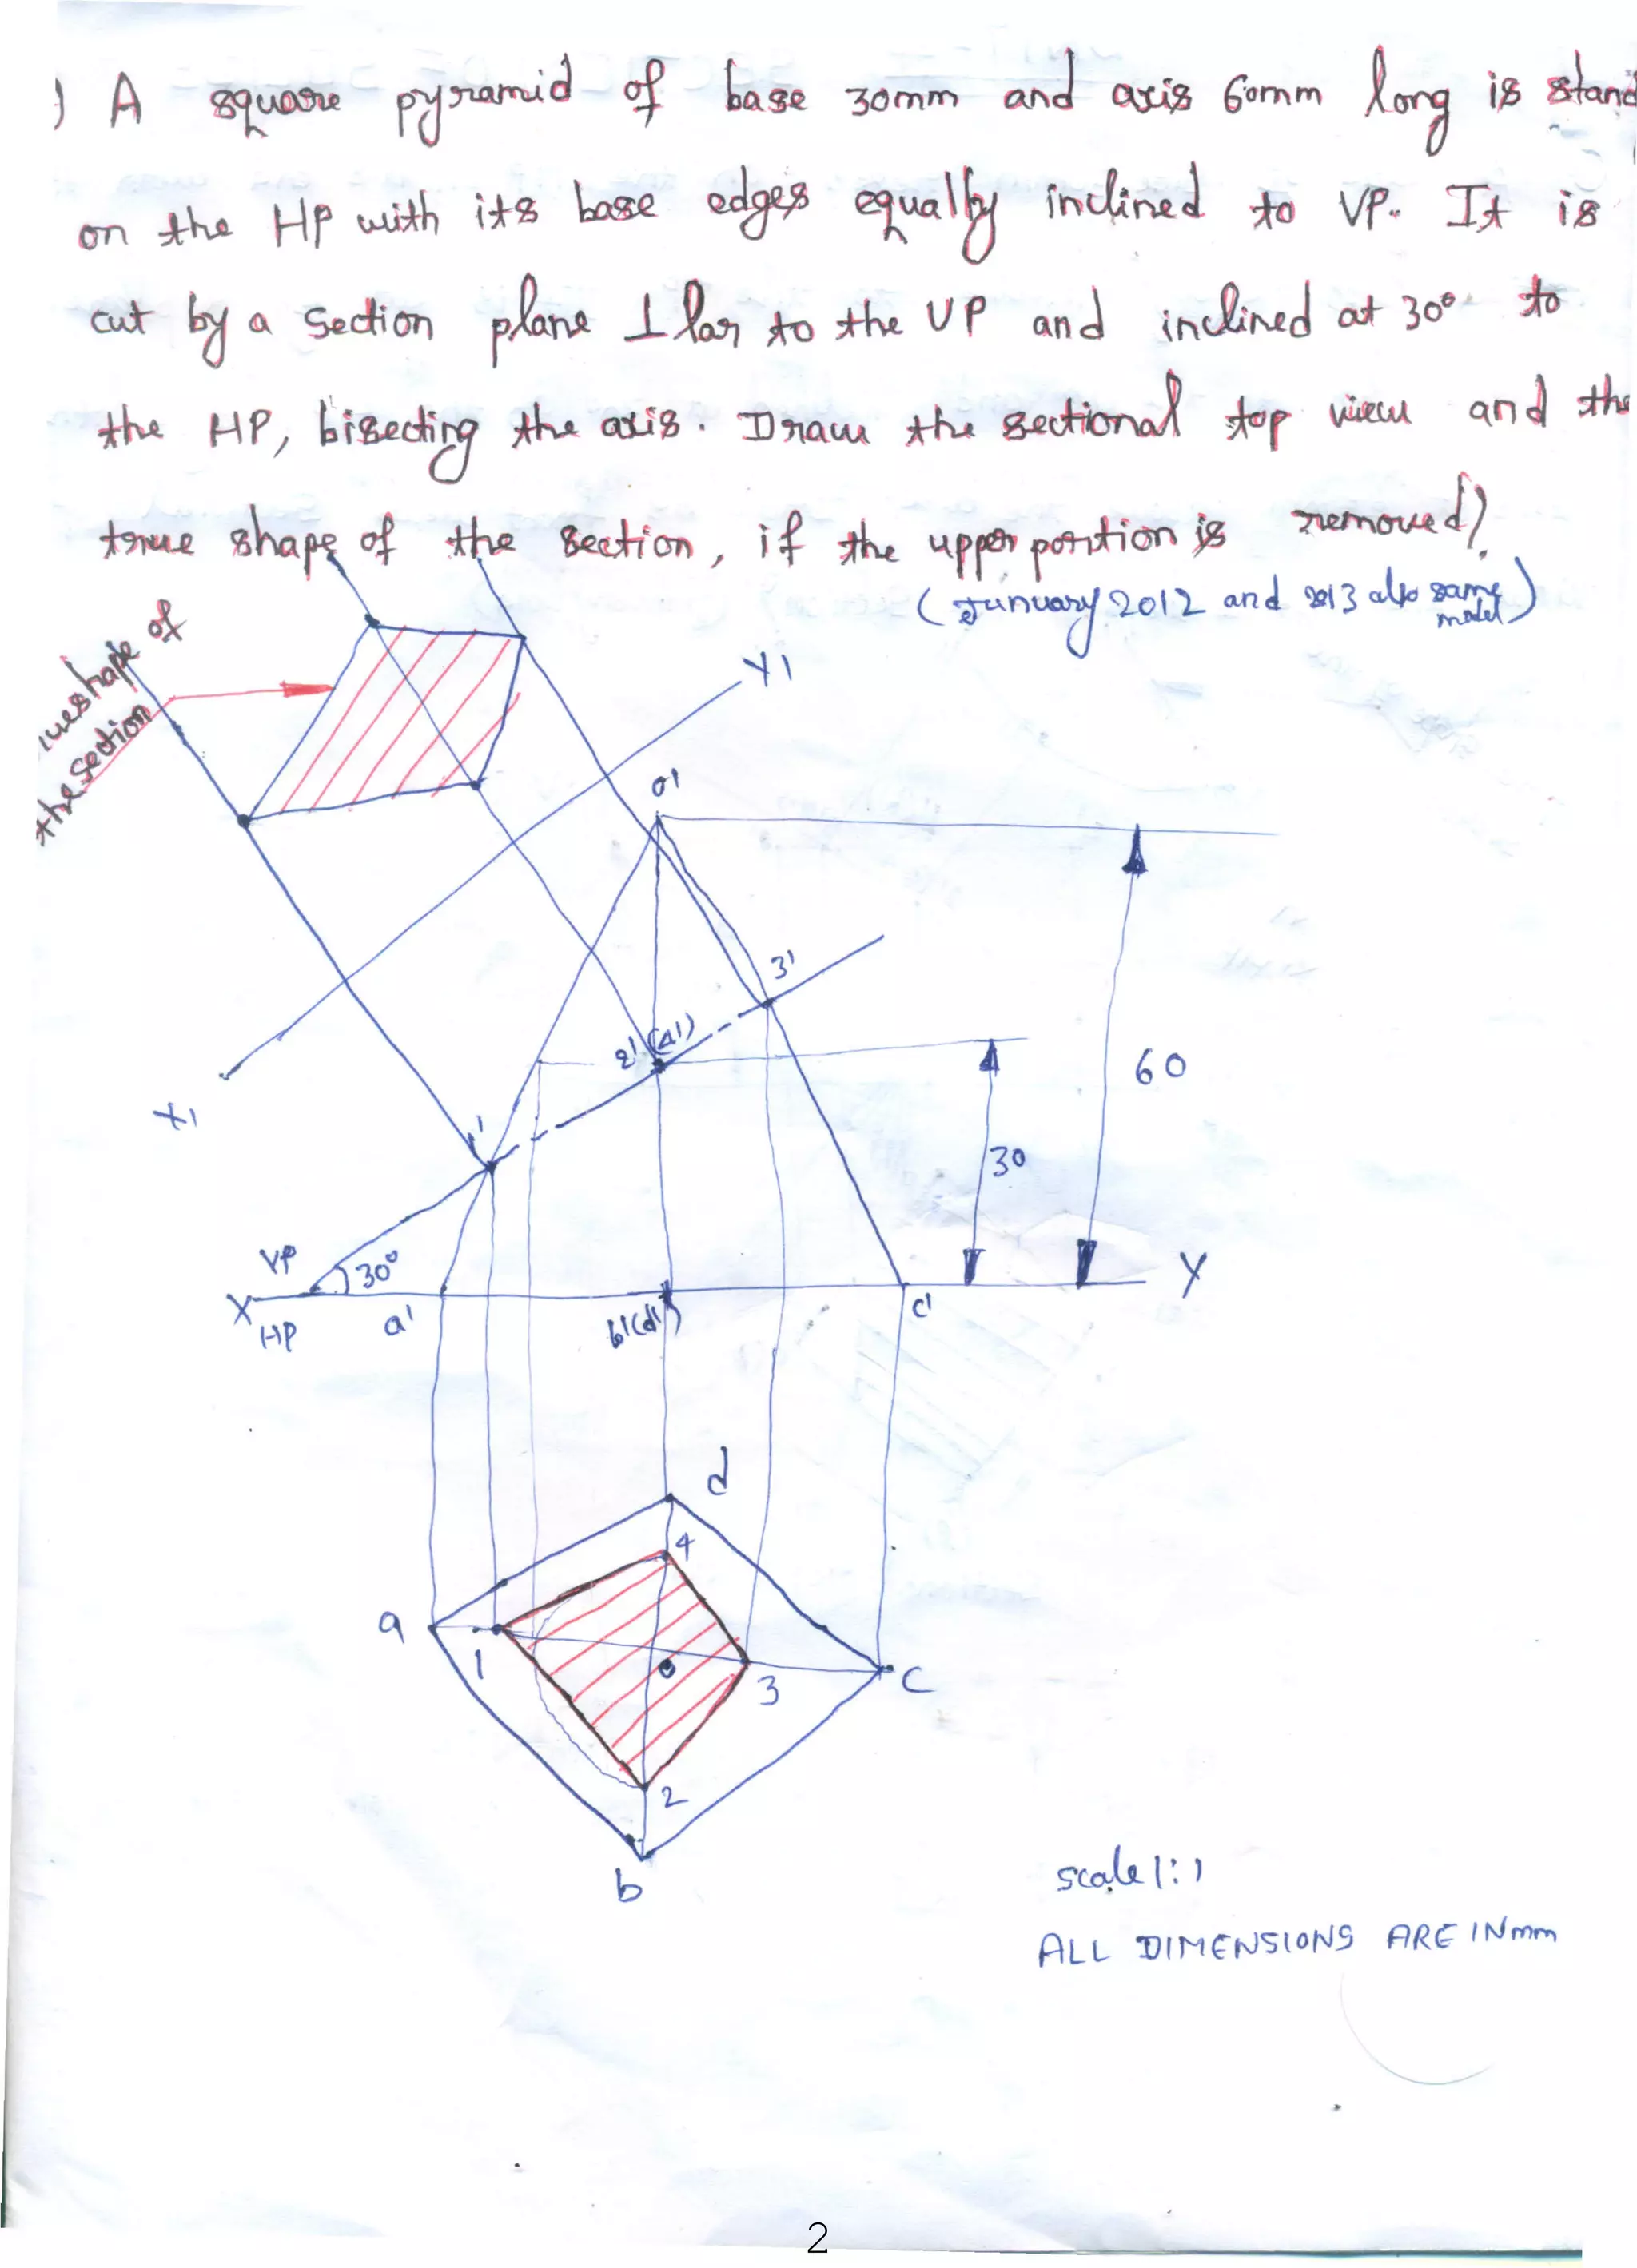 ) A square pyramid of base 30mm and axis 60mm long is stand
on the HP with its base edges equally inclined to VP. It is
cut by a section plane ⊥lar to the VP and inclined at 30° to
the HP, bisecting the axis. Draw the sectional top view and the
true shape of the section, if the upper portion is removed?
(January 2012 and 2013 also same model)
rueshape of
the section
Y1
o'
3'
2'(4')
60
X1
1'
30
VP
30°
X
Y
HP
a'
b'(d')
c'
d
4
a
1
3
c
2
b
scale 1:1
ALL DIMENSIONS ARE IN mm
2